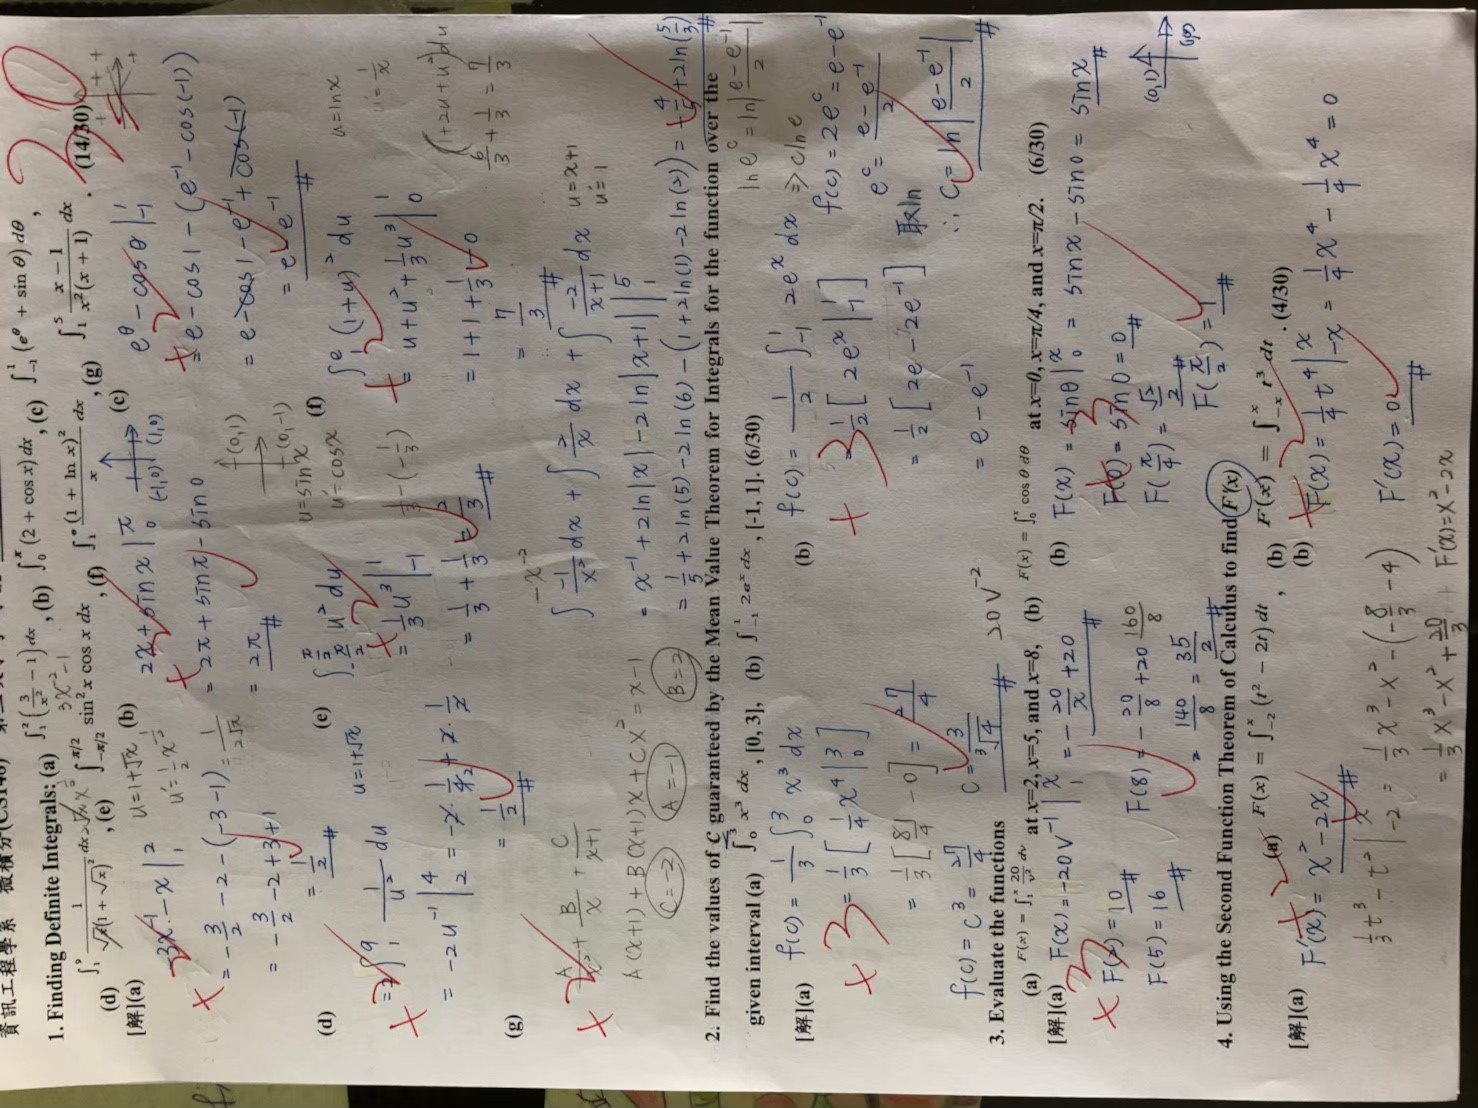 資訊工程學系 微積分(CS148)
1. Finding Definite Integrals: (a) ∫₁² (3/x² − 1) dx , (b) ∫₀^π (2 + cos x) dx , (c) ∫₋₁¹ (e^θ + sin θ) dθ ,
3x⁻²−1
(d) ∫₁⁹ 1/(√x(1 + √x)²) dx , (e) ∫_{−π/2}^{π/2} sin² x cos x dx , (f) ∫₁^e (1 + ln x)²/x dx , (g) ∫₁⁵ (x − 1)/(x²(x + 1)) dx . (14/30)
30
[解](a)
u=1+√x
u'=½x^{-½}
+2
-3x⁻¹-x |₁²
= -3/2 -2 -(-3-1) = 1/(2√x)
= -3/2 -2+3+1
= 1/2 #
(b)
+2
2x+sinx |₀^π
(-1,0) (1,0)
= 2π + sinπ - sin0
= 2π #
(0,1)
(0,-1)
(c)
+2
e^θ - cosθ |₋₁¹
= e-cos1-(e⁻¹-cos(-1))
= e-cos1-e⁻¹+cos(-1)
= e-e⁻¹ #
(d)
u=1+√x
+2
=2∫₁⁹ 1/u² du
= -2u⁻¹ |₂⁴ = -2·1/4 + 2·1/2
= 1/2 #
(e)
u=sinx
u'=cosx
+2
∫_{-π/2}^{π/2} u² du
= 1/3 u³ |₋₁¹ 1/3-(-1/3)
= 1/3 + 1/3 = 2/3 #
(f)
u=lnx
u'=1/x
+2
∫₁^e (1+u)² du
= u+u²+1/3u³ |₀¹
∫(1+2u+u²)du
= 1+1+1/3-0
6/3+1/3=7/3
= 7/3 #
(g)
+2
A/x² + B/x + C/(x+1)
A(x+1)+B(x+1)x+Cx²=x-1
C=-2 A=-1 B=2
-x⁻²
∫ -1/x² dx + ∫ 2/x dx + ∫ -2/(x+1) dx
u=x+1
u'=1
= x⁻¹+2ln|x|-2ln|x+1| |₁⁵
= 1/5+2ln(5)-2ln(6)-(1+2ln(1)-2ln(2)) = -4/5+2ln(5/3) #
2. Find the values of C guaranteed by the Mean Value Theorem for Integrals for the function over the
given interval (a) ∫₀³ x³ dx , [0, 3], (b) ∫₋₁¹ 2e^x dx , [-1, 1]. (6/30)
ln e^c = ln|(e-e⁻¹)/2|
[解](a)
f(c) = 1/3 ∫₀³ x³ dx
+3
= 1/3 [1/4 x⁴ |₀³]
= 1/3 [81/4 - 0] = 27/4
f(c)=c³=27/4 c=3/∛4 #
(b)
f(c) = 1/2 ∫₋₁¹ 2e^x dx ⇒ clne
+3
1/2 [2e^x |₋₁¹]
f(c)=2e^c=e-e⁻¹
e^c=(e-e⁻¹)/2
= 1/2 [2e-2e⁻¹] 取ln
∴ C=ln|(e-e⁻¹)/2| #
= e-e⁻¹
3. Evaluate the functions
20V⁻²
(a) F(x) = ∫₁^x 20/v² dv at x=2, x=5, and x=8, (b) F(x) = ∫₀^x cos θ dθ at x=0, x=π/4, and x=π/2. (6/30)
[解](a)
F(x)=-20V⁻¹ |₁^x = -20/x +20
+3
F(2)=10 #
F(5)=16 #
F(8)= -20/8 +20 160/8
= 140/8 = 35/2 #
(b)
F(x) = sinθ|₀^x = sinx-sin0 = sinx #
+3
F(0)=sin0=0 #
F(π/4)=√2/2 #
F(π/2)=1 #
(0,1)
4. Using the Second Function Theorem of Calculus to find F'(x)
(a) F(x) = ∫₋₂^x (t² − 2t) dt , (b) F(x) = ∫₋ₓ^x t³ dt . (4/30)
[解](a)
+2
F'(x)= x²-2x #
1/3t³-t² |₋₂^x = 1/3x³-x²-(-8/3-4)
= 1/3x³-x²+20/3 F'(x)=x²-2x
(b)
+2
F(x)=1/4 t⁴ |₋ₓ^x = 1/4x⁴-1/4x⁴=0
F'(x)=0 #